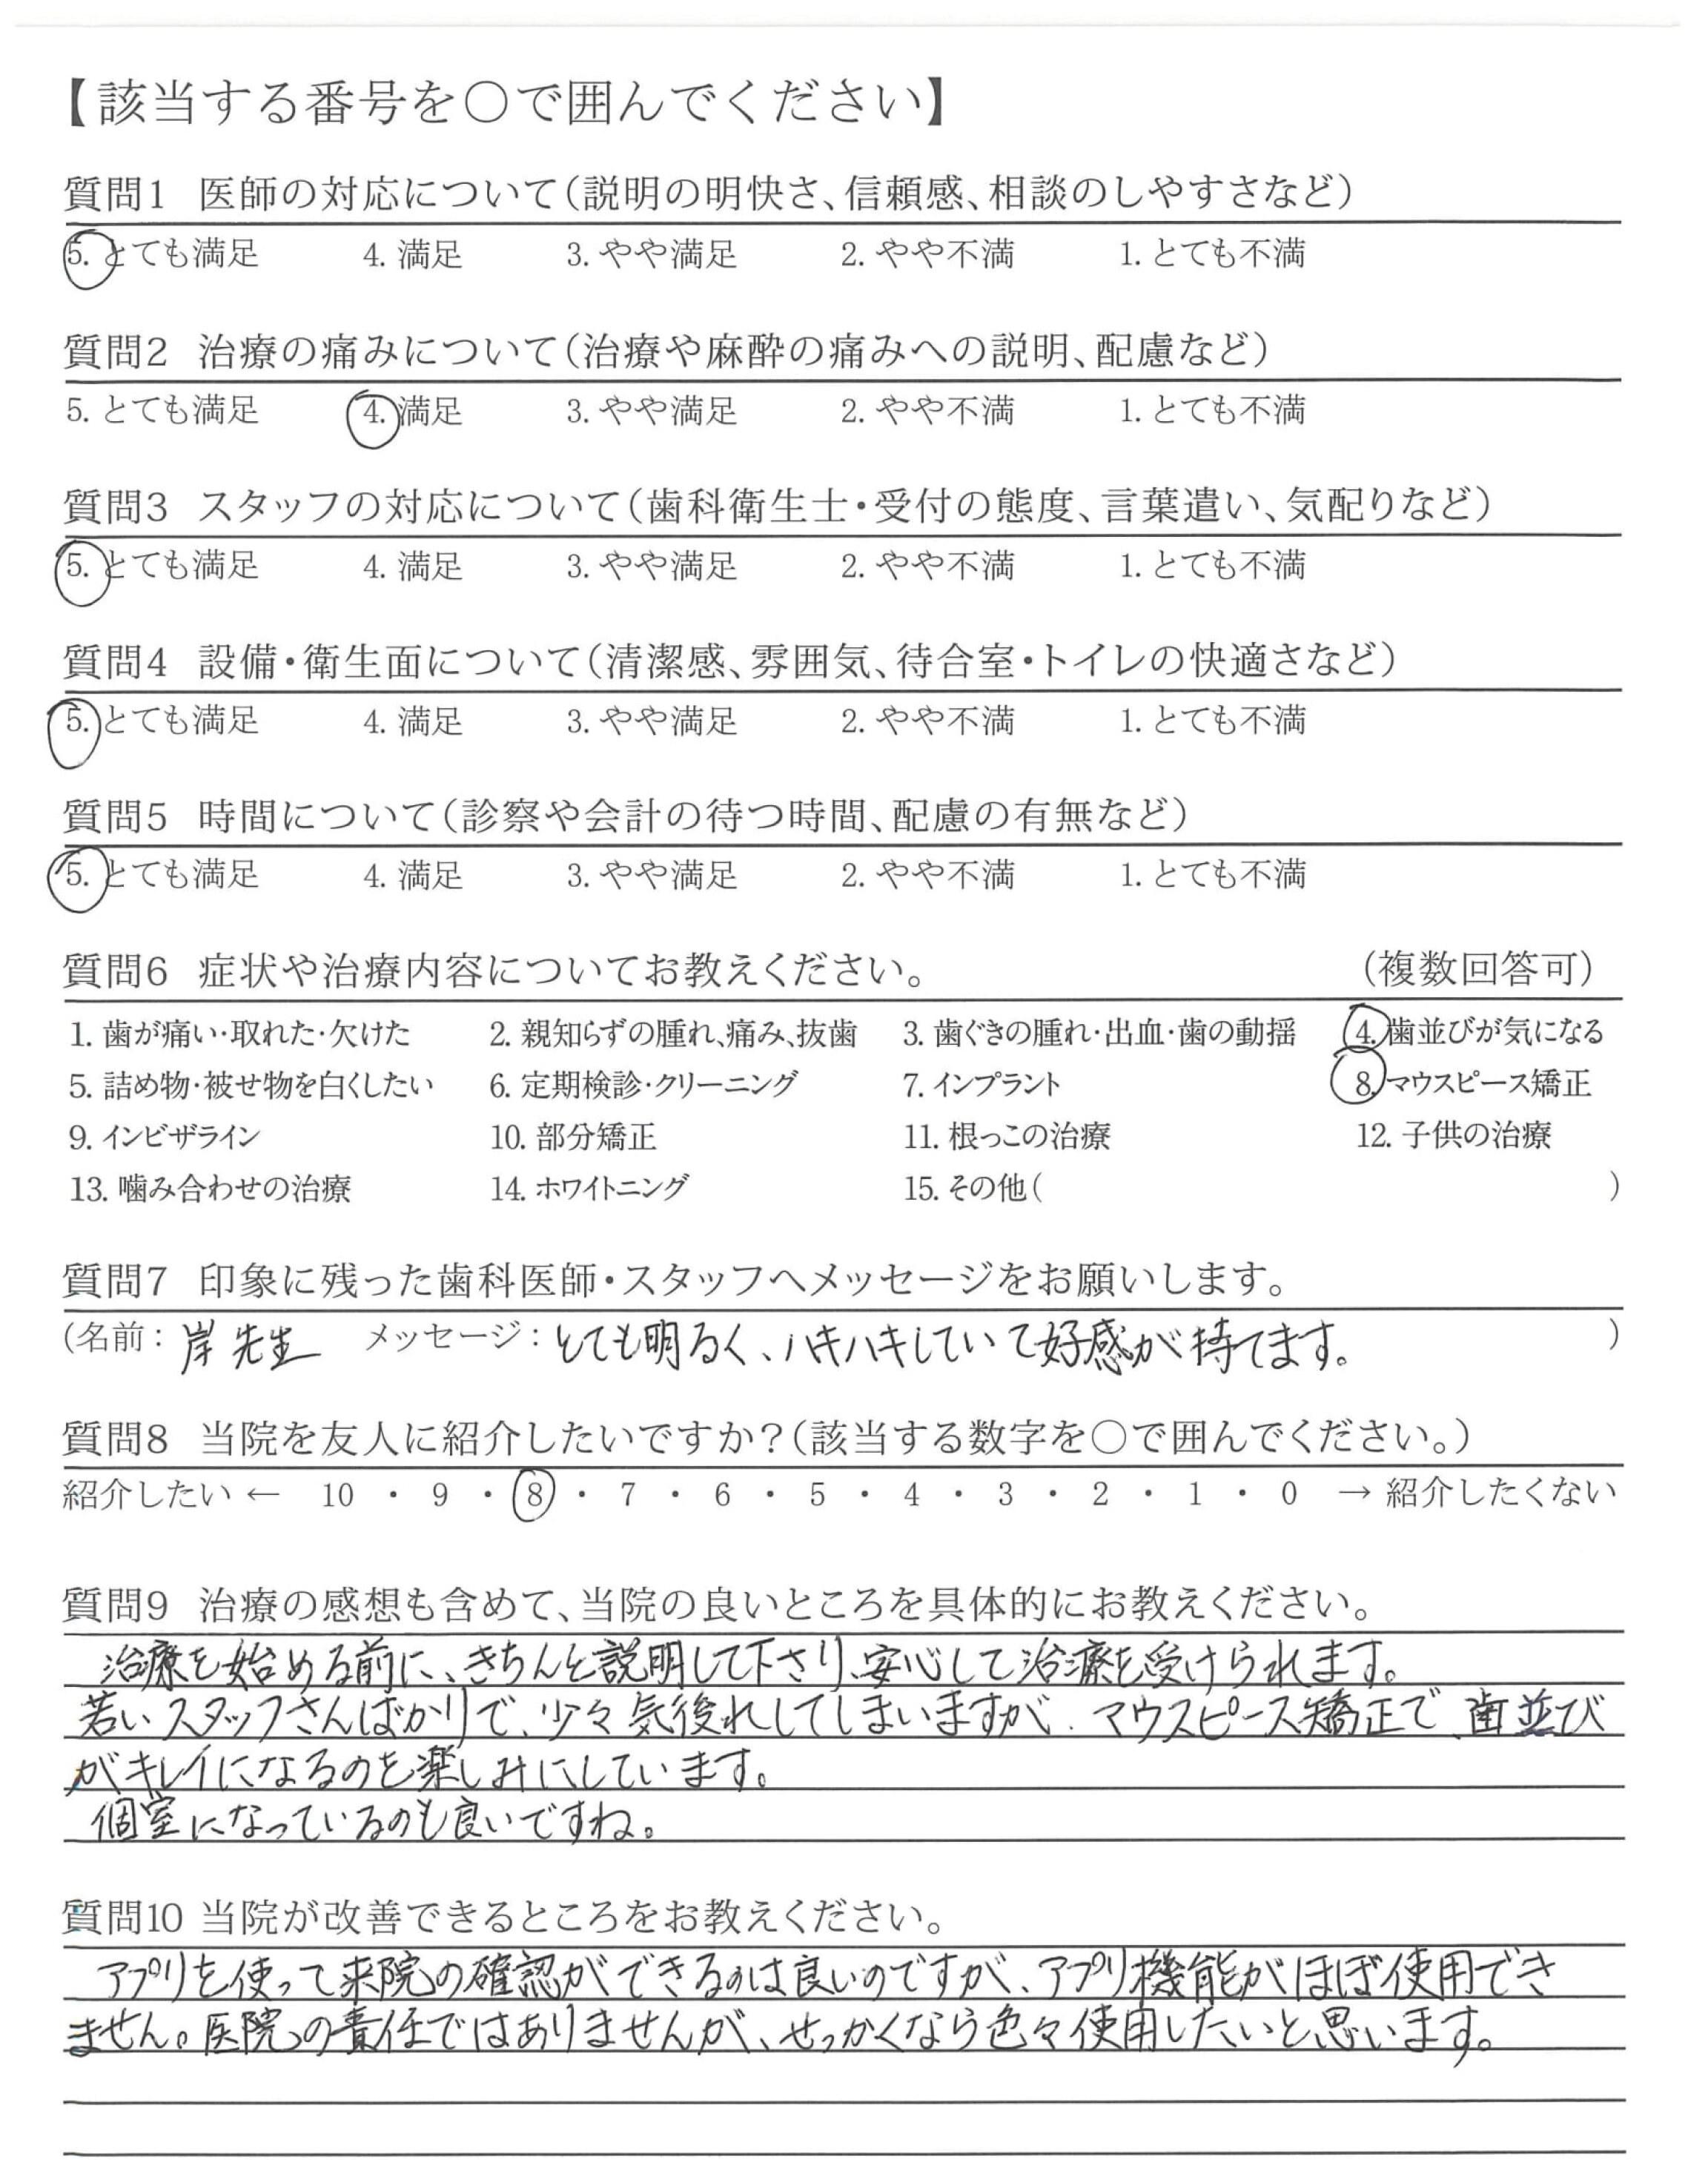 【該当する番号を○で囲んでください】
質問1 医師の対応について(説明の明快さ、信頼感、相談のしやすさなど)
5. とても満足 4. 満足 3. やや満足 2. やや不満 1. とても不満
質問2 治療の痛みについて(治療や麻酔の痛みへの説明、配慮など)
5. とても満足 4. 満足 3. やや満足 2. やや不満 1. とても不満
質問3 スタッフの対応について(歯科衛生士・受付の態度、言葉遣い、気配りなど)
5. とても満足 4. 満足 3. やや満足 2. やや不満 1. とても不満
質問4 設備・衛生面について(清潔感、雰囲気、待合室・トイレの快適さなど)
5. とても満足 4. 満足 3. やや満足 2. やや不満 1. とても不満
質問5 時間について(診察や会計の待つ時間、配慮の有無など)
5. とても満足 4. 満足 3. やや満足 2. やや不満 1. とても不満
質問6 症状や治療内容についてお教えください。 (複数回答可)
1. 歯が痛い・取れた・欠けた 2. 親知らずの腫れ、痛み、抜歯 3. 歯ぐきの腫れ・出血・歯の動揺 4. 歯並びが気になる
5. 詰め物・被せ物を白くしたい 6. 定期検診・クリーニング 7. インプラント 8. マウスピース矯正
9. インビザライン 10. 部分矯正 11. 根っこの治療 12. 子供の治療
13. 噛み合わせの治療 14. ホワイトニング 15. その他( )
質問7 印象に残った歯科医師・スタッフへメッセージをお願いします。
(名前: 岸先生 メッセージ: とても明るく、ハキハキしていて好感が持てます。 )
質問8 当院を友人に紹介したいですか?(該当する数字を○で囲んでください。)
紹介したい ← 10 ・ 9 ・ 8 ・ 7 ・ 6 ・ 5 ・ 4 ・ 3 ・ 2 ・ 1 ・ 0 → 紹介したくない
質問9 治療の感想も含めて、当院の良いところを具体的にお教えください。
治療を始める前に、きちんと説明して下さり、安心して治療を受けられます。
若いスタッフさんばかりで、少々気後れしてしまいますが、マウスピース矯正で、歯並び
がキレイになるのを楽しみにしています。
個室になっているのも良いですね。
質問10 当院が改善できるところをお教えください。
アプリを使って来院の確認ができるのは良いのですが、アプリ機能がほぼ使用でき
ません。医院の責任ではありませんが、せっかくなら色々使用したいと思います。